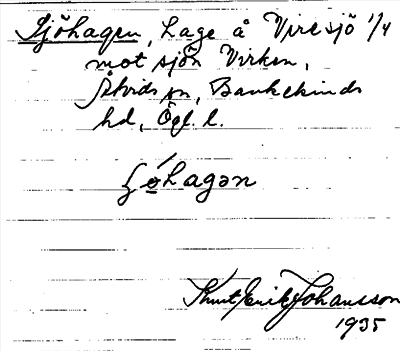 Sjöhagen, Lage å Viresjö 1/4
mot sjön Virken,
Åtvids sn, Bankekinds
hd, Ögl. l.
ʃóhagən
Knut Erik Johansson
1935